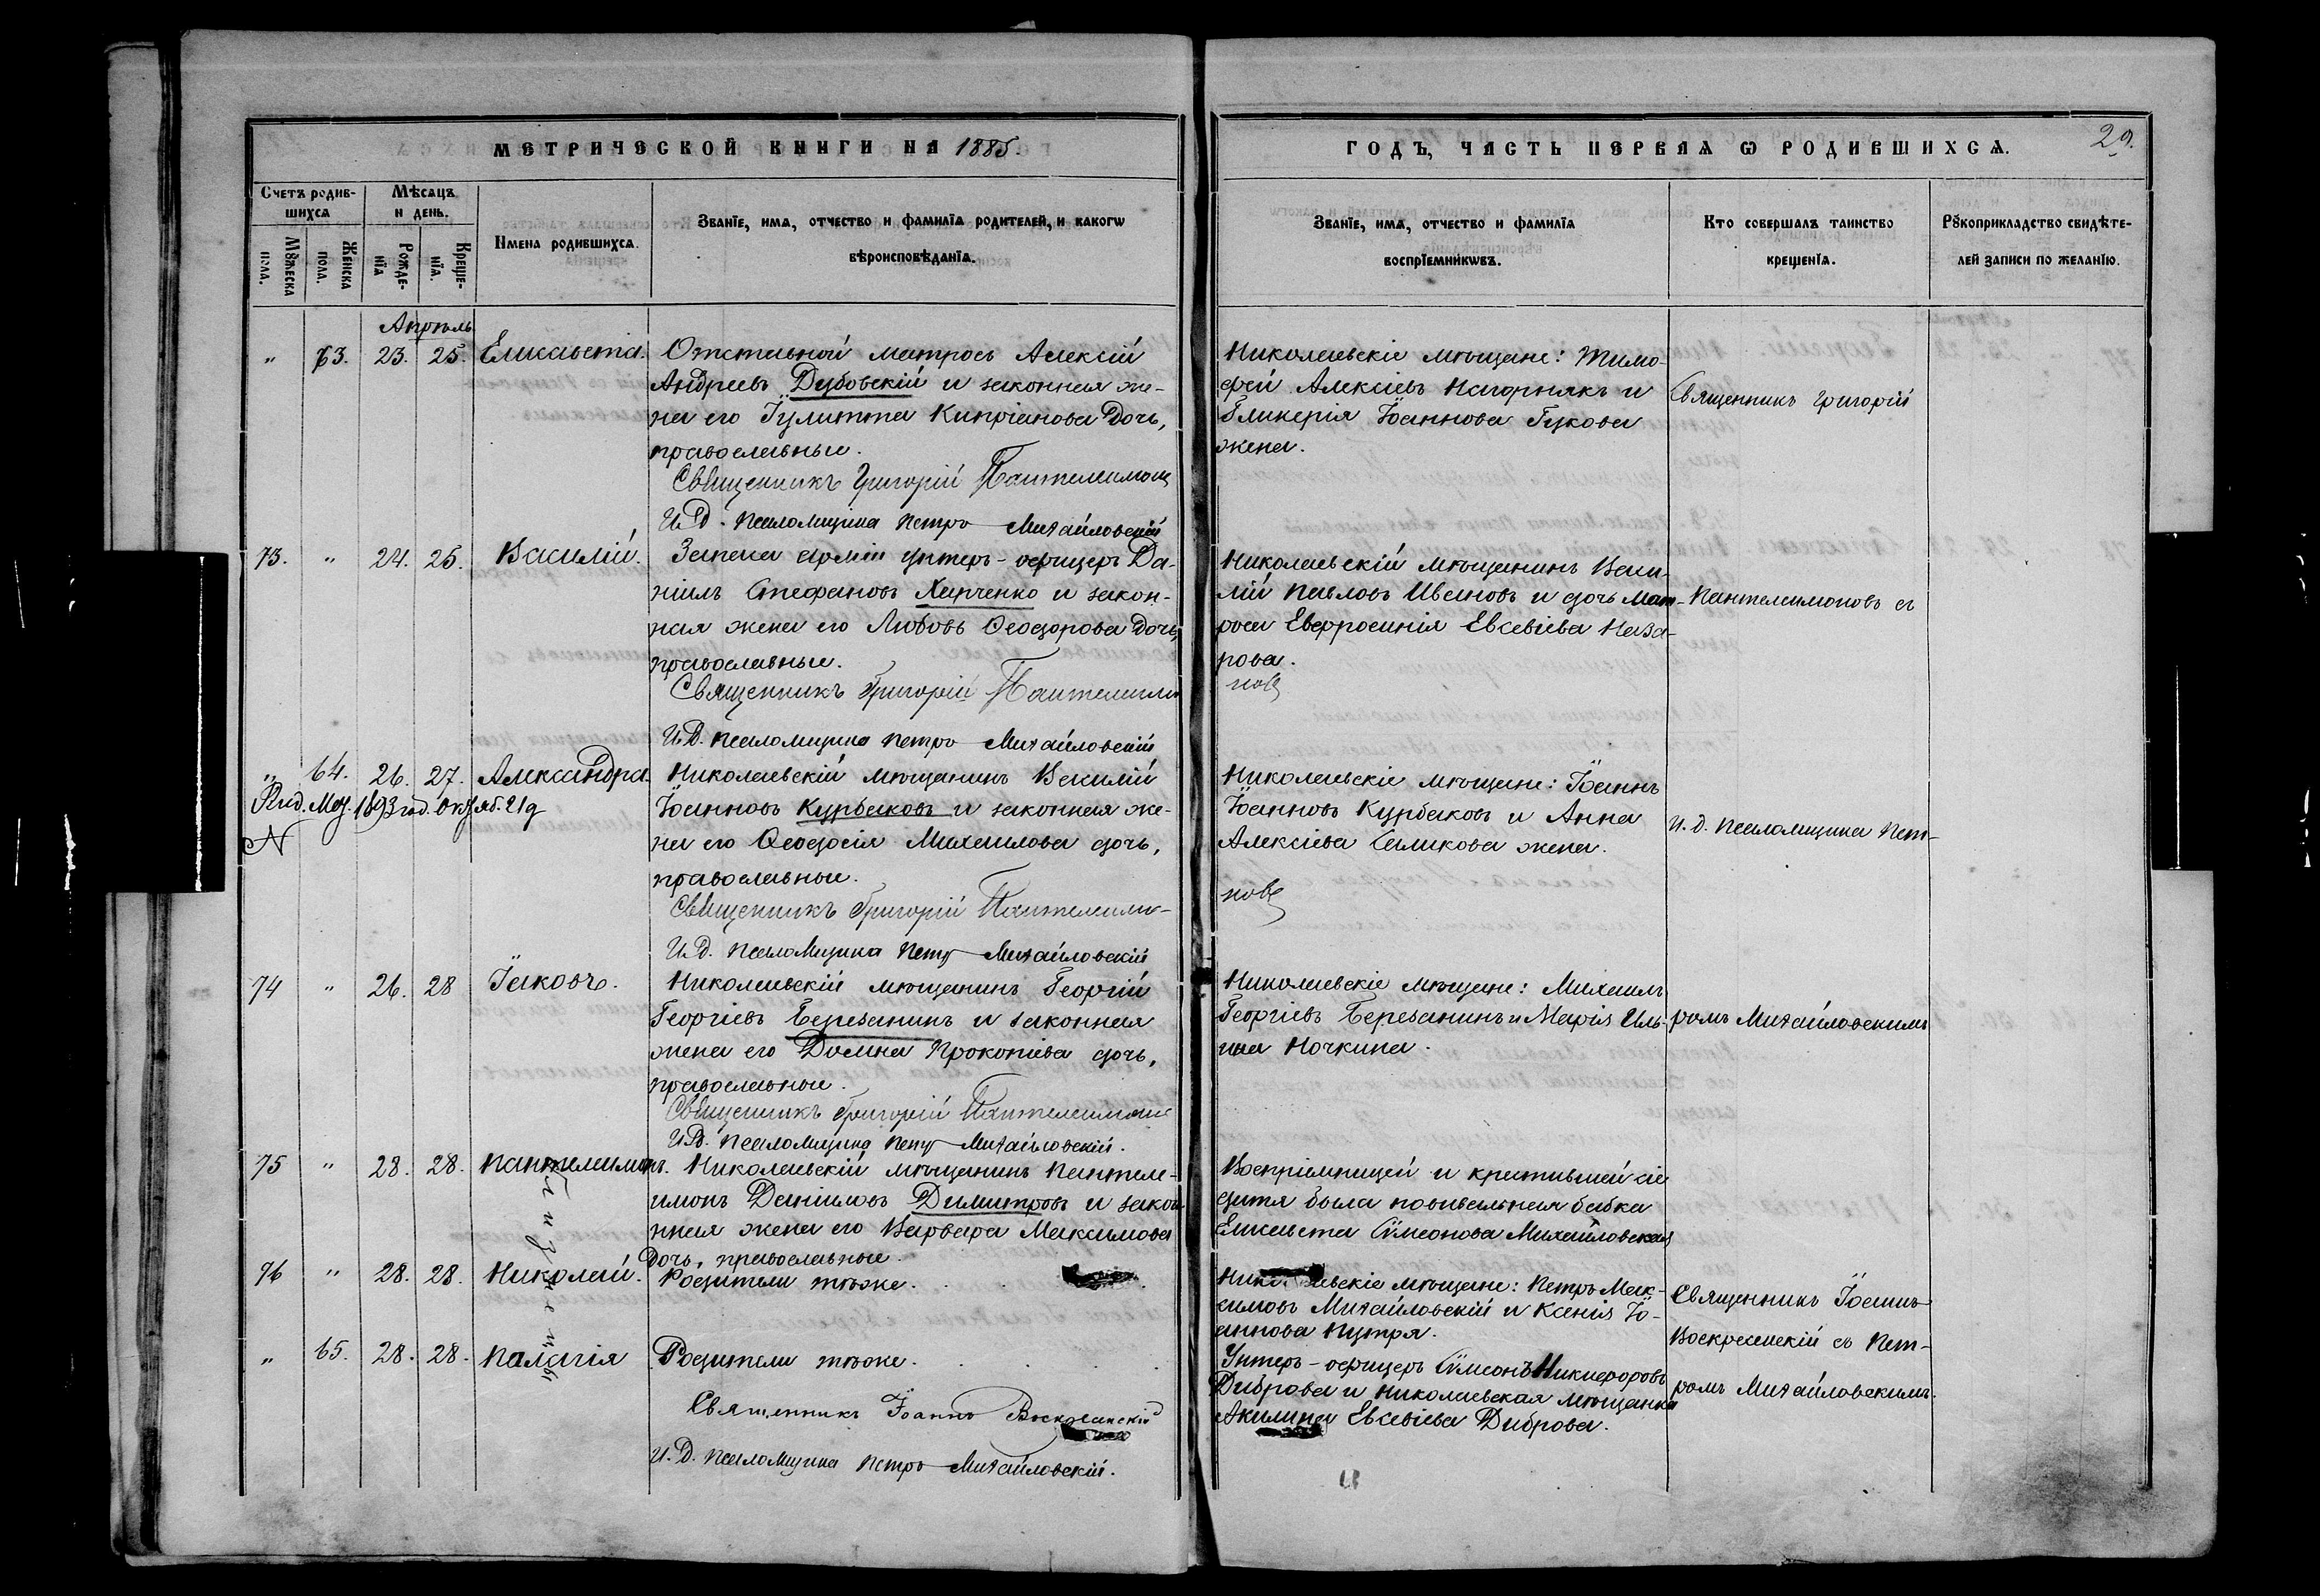 МЕТРИЧЕСКОЙ КНИГИ НА 1885.
Счетъ родившихся
Мѣсяцъ и день.
Имена родившихся.
Званіе, имя, отчество и фамилія родителей, и какого
вѣроисповѣданія.
Мужеска пола.
Женска пола.
Рожденія
Крещенія.
Апрѣль
" 63. 23. 25. Елисавета.
Отставной матросъ Алексій
Андреевъ Дубовскій и законная же-
на его Іулитта Кипріанова дочь,
православные.
Священникъ Григорій Пантелимон
И.д. псаломщика Петръ Михайловскій
73. " 24. 25. Василій.
Запаса арміи унтеръ-офицеръ Да-
ніилъ Стефановъ Харченко и закон-
ная жена его Любовь Ѳеодорова дочь,
православные.
Священникъ Григорій Пантелимо
И.д. псаломщика Петръ Михайловскій
" 64. 26. 27. Александра.
1893 год. Октяб. 21 д
Николаевскій мѣщанинъ Василій
Іоанновъ Курбаковъ и законная же-
на его Ѳеодосія Михаилова дочь,
православные.
Священникъ Григорій Пантелимо-
И.д. псаломщика Петръ Михайловскій
74 " 26. 28 Іаковъ.
Николаевскій мѣщанинъ Георгій
Георгіевъ Березанинъ и законная
жена его Домна Прокопіева дочь,
православные.
Священникъ Григорій Пантелимон
И.д. псаломщика Петръ Михайловскій.
75 " 28. 28. Пантелеимонъ.
Николаевскій мѣщанинъ Пантеле-
имонъ Даніиловъ Димитровъ и закон-
ная жена его Варвара Максимова
дочь, православные.
близнецы
76 " 28. 28. Николай.
Родители тѣже.
" 65. 28. 28. Пелагія
Родители тѣже.
Священникъ Іоаннъ Воскресенскій
И.д. псаломщика Петръ Михайловскій.
ГОДЪ, ЧАСТЬ ПЕРВАЯ Ѡ РОДИВШИХСЯ.
29.
Званіе, имя, отчество и фамилія
воспріемниковъ.
Кто совершалъ таинство
крещенія.
Рукоприкладство свидѣте-
лей записи по желанію.
Николаевскіе мѣщане: Тимо-
фей Алексіевъ Нагорнякъ и
Гликерія Іоаннова Гукова
жена.
Священникъ Григорій
Николаевскій мѣщанинъ Васи-
лій Павловъ Ивановъ и дочь мат-
роса Евфросинія Евсевіева Наза-
рова.
новъ
Пантелеимоновъ съ
Николаевскіе мѣщане: Іоаннъ
Іоанновъ Курбаковъ и Анна
Алексіева Саликова жена.
новъ
и. д. псаломщика Пет-
Николаевскіе мѣщане: Михаилъ
Георгіевъ Березанинъ и Марія Иль-
ина Ночкина.
ромъ Михайловскимъ
Воспріемницей и крестившей сіе
дитя была повивальная бабка
Елисавета Симеонова Михайловская
Николаевскіе мѣщане: Петръ Мак-
симовъ Михайловскій и Ксенія Іо-
аннова Путря.
Священникъ Іоаннъ
Воскресенскій съ Пет-
Унтеръ-офицеръ Симеонъ Никифоровъ
Диброва и Николаевская мѣщанка
Акилина Евсевіева Диброва.
ромъ Михайловскимъ.